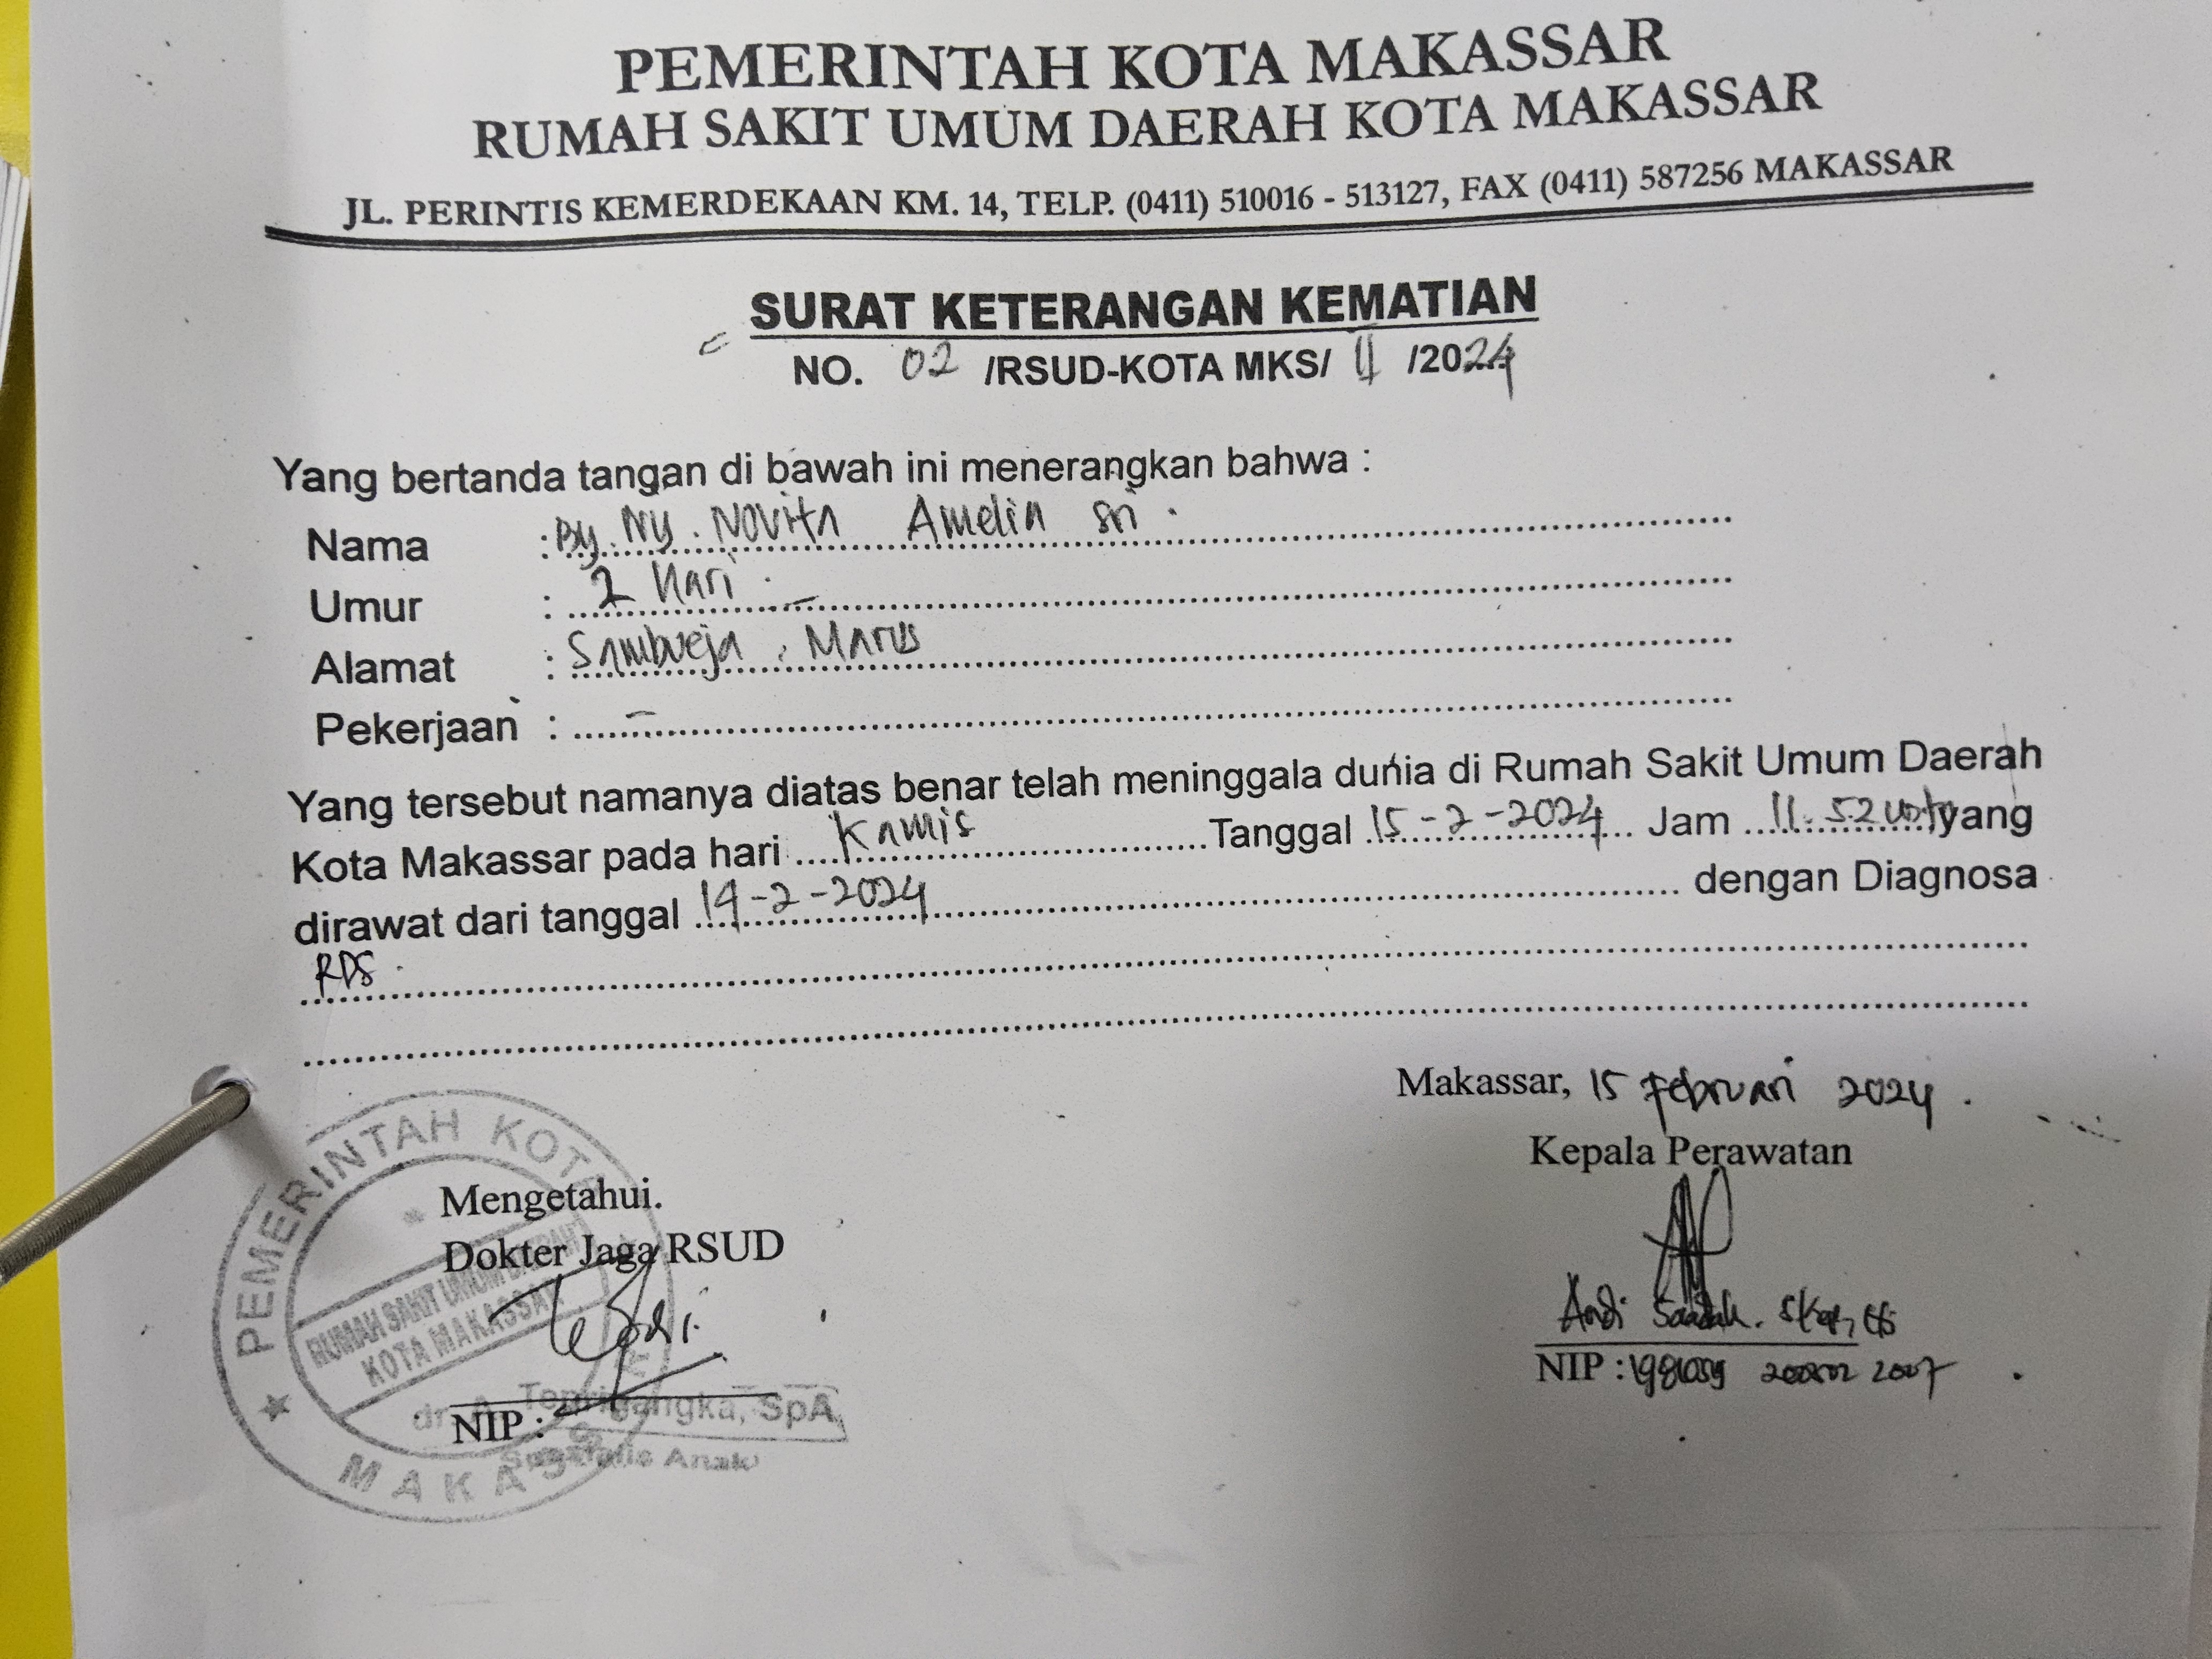 PEMERINTAH KOTA MAKASSAR
RUMAH SAKIT UMUM DAERAH KOTA MAKASSAR
JL. PERINTIS KEMERDEKAAN KM. 14, TELP. (0411) 510016 - 513127, FAX (0411) 587256 MAKASSAR
SURAT KETERANGAN KEMATIAN
NO. 02 /RSUD-KOTA MKS/ II /2024
Yang bertanda tangan di bawah ini menerangkan bahwa :
Nama : By. Ny. Novita Amelia sri
Umur : 2 Hari
Alamat : Sambueja, Maros
Pekerjaan : -
Yang tersebut namanya diatas benar telah meninggala dunia di Rumah Sakit Umum Daerah
Kota Makassar pada hari Kamis Tanggal 15-2-2024 Jam 11.52 yang
dirawat dari tanggal 14-2-2024 dengan Diagnosa
RDS
Makassar, 15 Februari 2024
Kepala Perawatan
Andi
NIP :
Mengetahui.
Dokter Jaga RSUD
NIP :
SpA
Spesialis Anak
PEMERINTAH KOTA
RUMAH SAKIT UMUM DAERAH
KOTA MAKASSAR
MAKASSAR